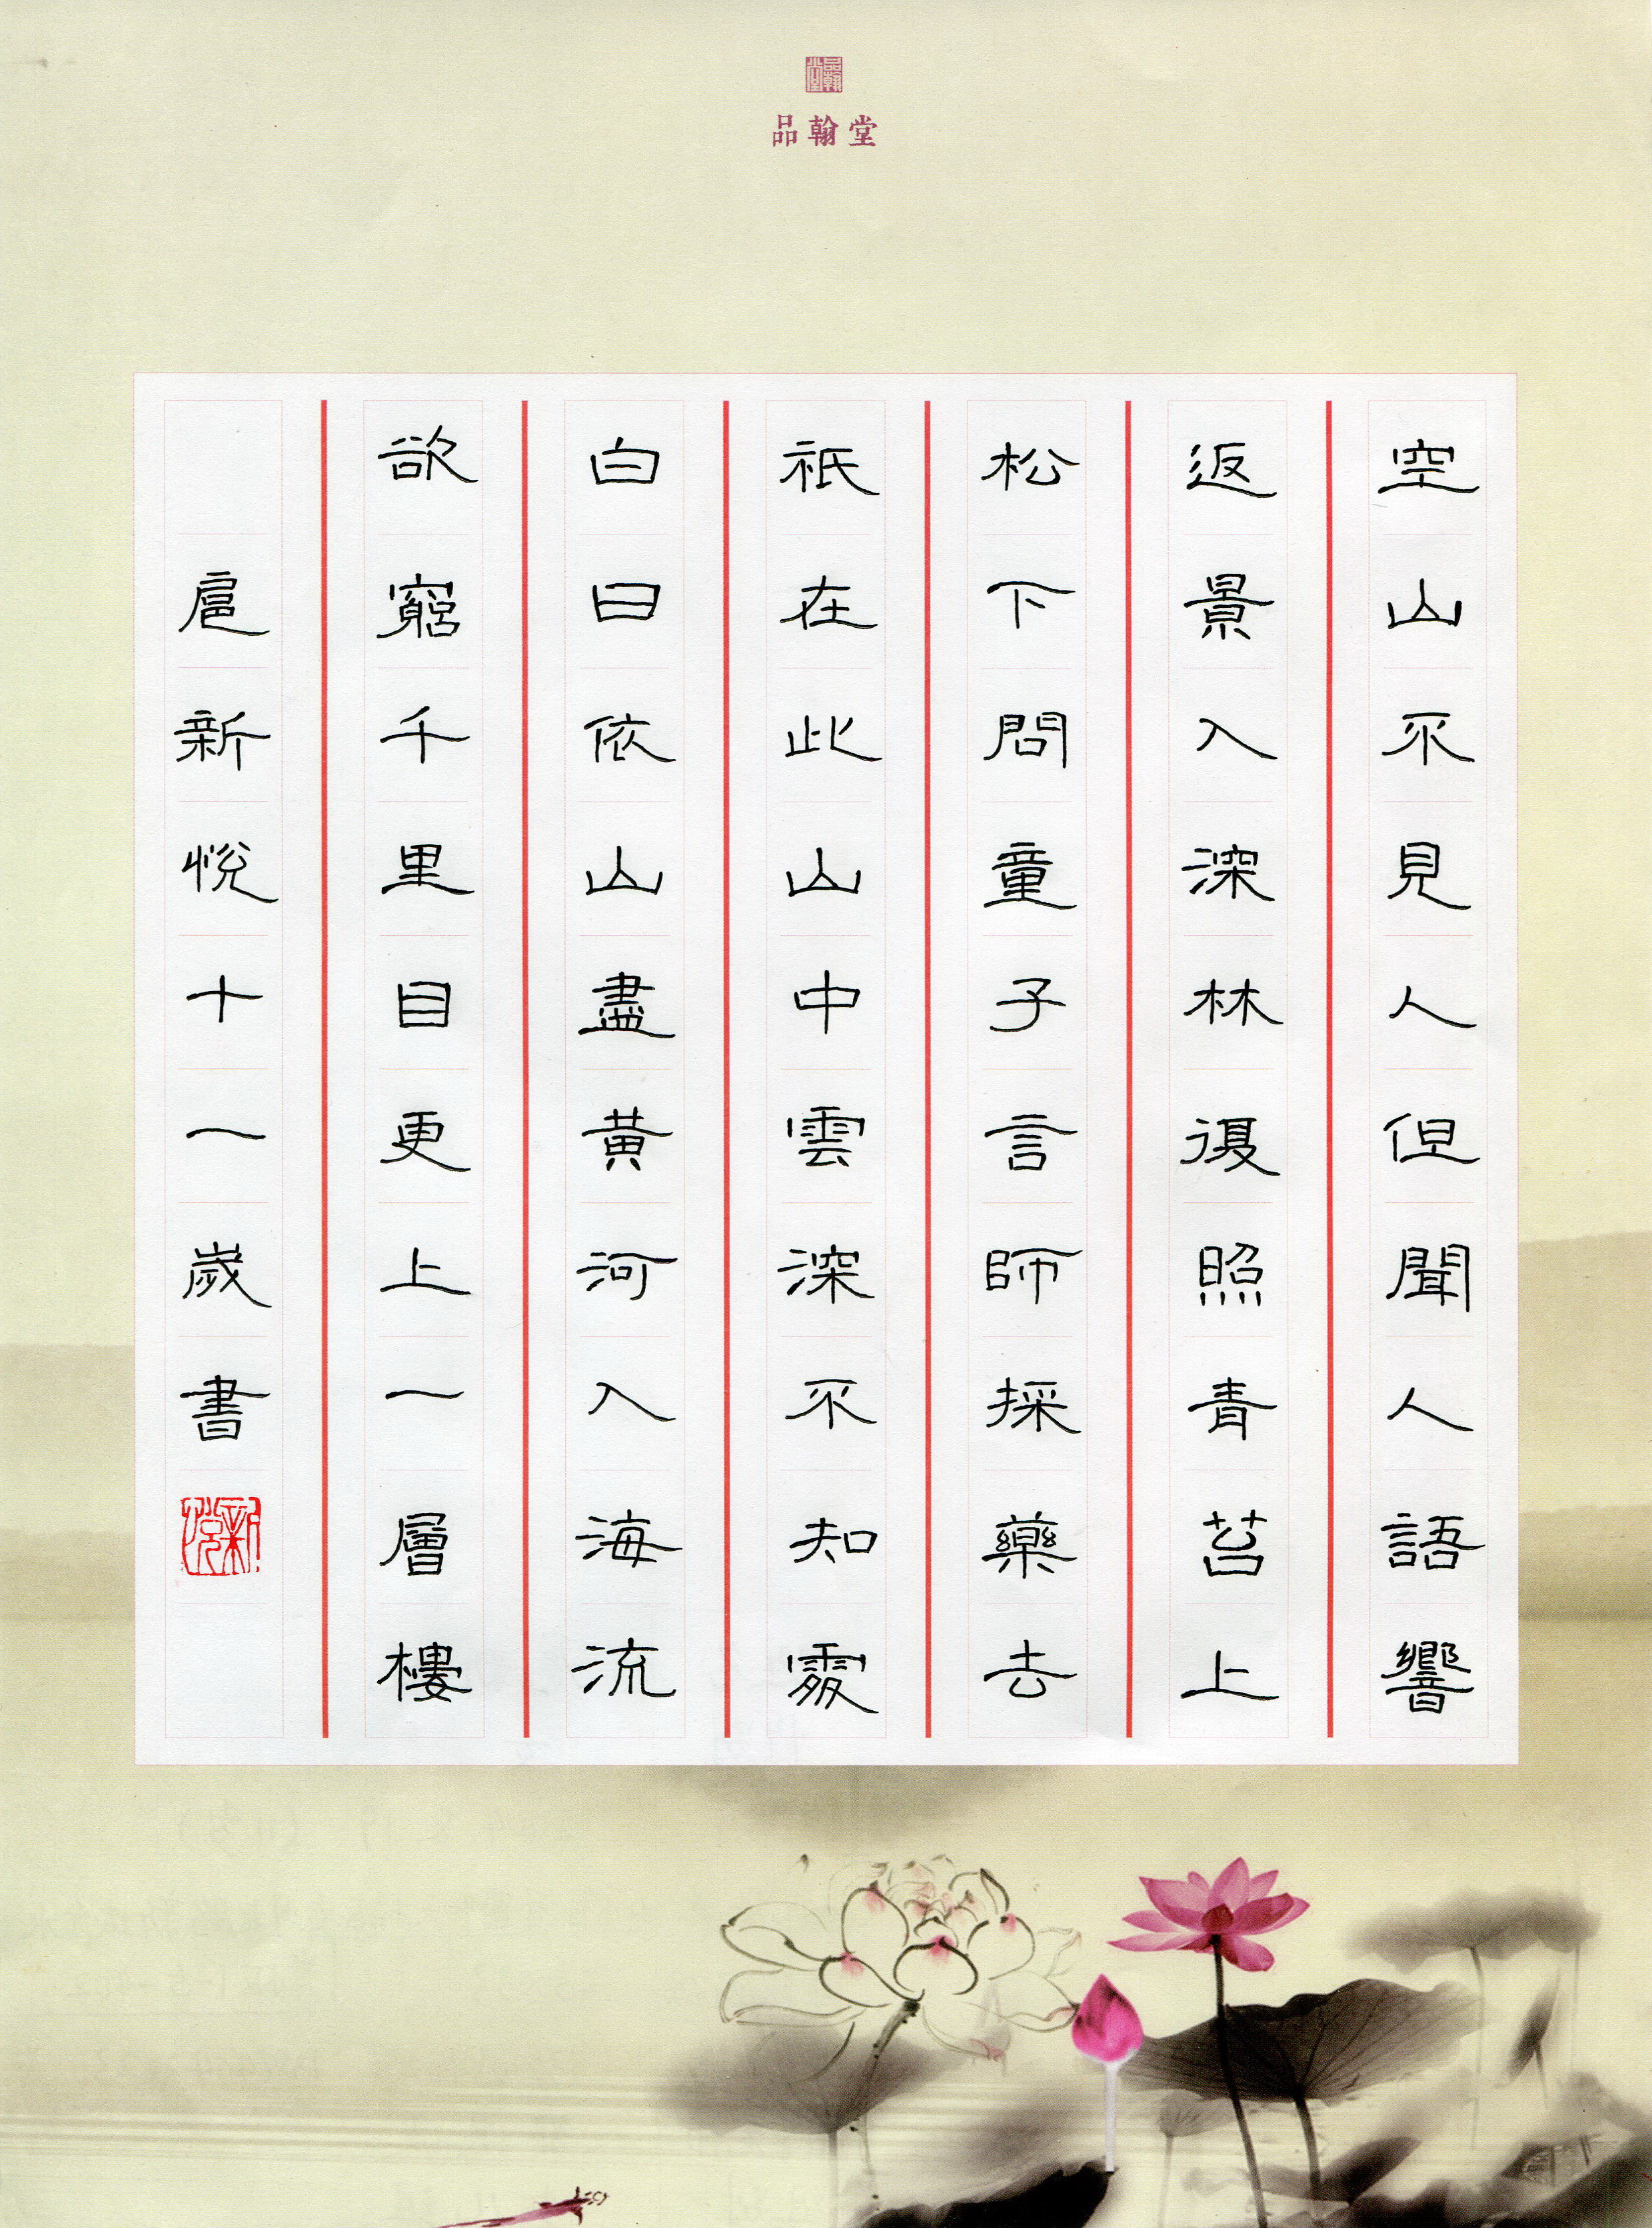 品翰堂
品翰堂
空山不見人但聞人語響
返景入深林復照青苔上
松下問童子言師採藥去
祇在此山中雲深不知處
白日依山盡黃河入海流
欲窮千里目更上一層樓
扈新悅十一歲書
新悅